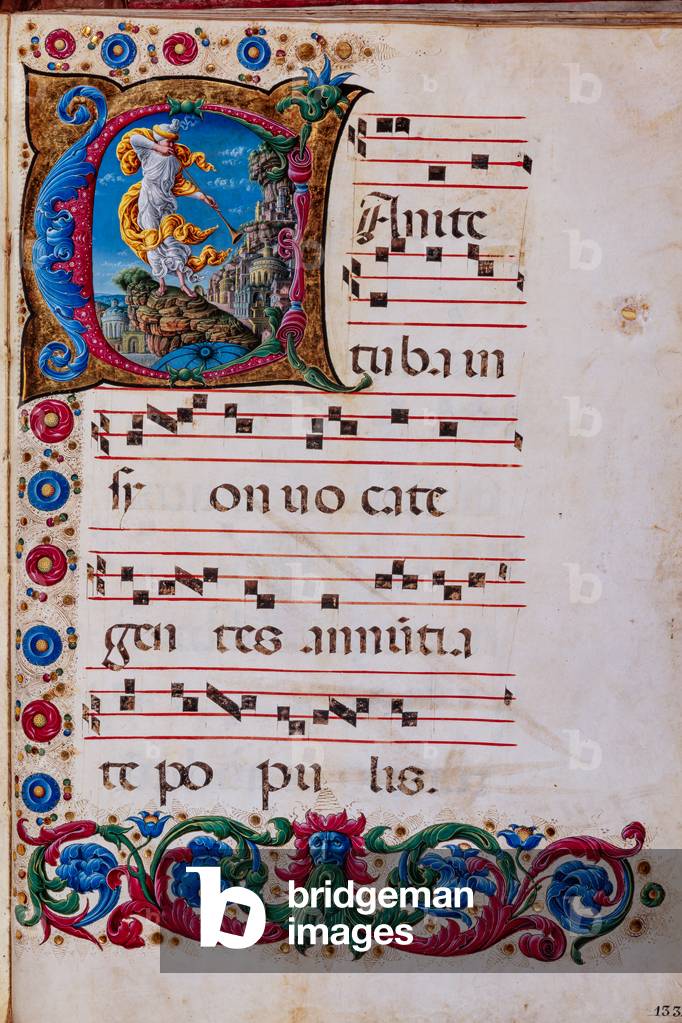 CAnite
tuba in
sy on uo cate
gen tes annūtia
te po pu lis.
b bridgeman
images
133